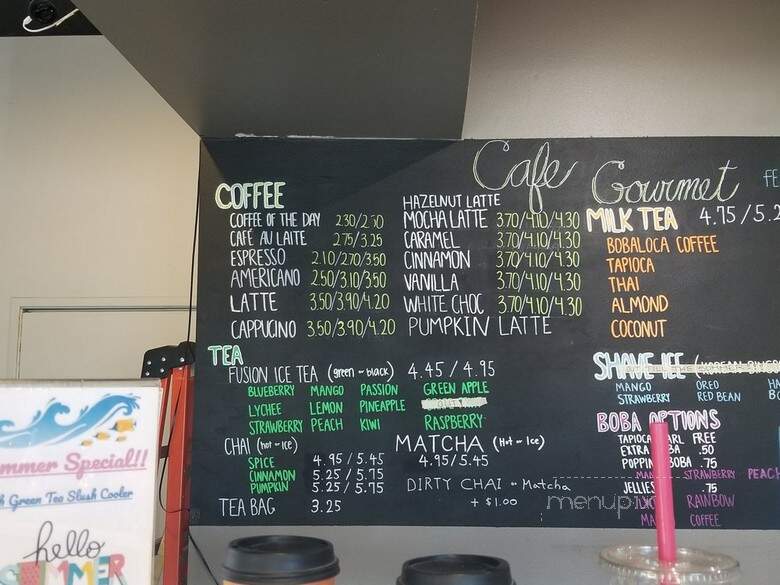 Cafe Gourmet
COFFEE
COFFEE OF THE DAY 2.30/2.50
CAFÉ AU LAITE 2.75/3.25
ESPRESSO 2.10/2.70/3.50
AMERICANO 2.50/3.10/3.50
LATTE 3.50/3.90/4.20
CAPPUCINO 3.50/3.90/4.20
HAZELNUT LATTE
MOCHA LATTE 3.70/4.10/4.30
CARAMEL 3.70/4.10/4.30
CINNAMON 3.70/4.10/4.30
VANILLA 3.70/4.10/4.30
WHITE CHOC 3.70/4.10/4.30
PUMPKIN LATTE
MILK TEA 4.75/5.2
BOBALOCA COFFEE
TAPIOCA
THAI
ALMOND
COCONUT
TEA
FUSION ICE TEA (green - black) 4.45/4.95
BLUEBERRY MANGO PASSION GREEN APPLE
LYCHEE LEMON PINEAPPLE
STRAWBERRY PEACH KIWI RASPBERRY
CHAI (hot - ice)
SPICE 4.95/5.45
CINNAMON 5.25/5.75
PUMPKIN 5.25/5.75
TEA BAG 3.25
MATCHA (Hot - Ice)
4.95/5.45
DIRTY CHAI - Matcha
+ $1.00
SHAVE ICE
MANGO OREO
STRAWBERRY RED BEAN
BOBA OPTIONS
TAPIOCA FREE
EXTRA .50
BOBA .75
STRAWBERRY PEACH
JELLIES .75
RAINBOW
COFFEE
Special!!
Green Tea Slush Cooler
hello
SUMMER
menupix